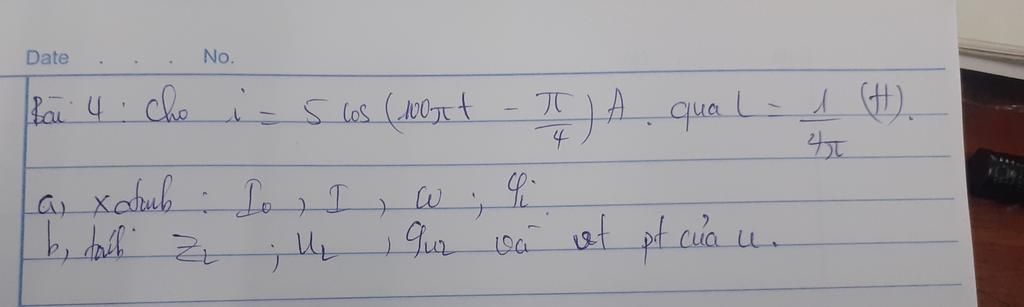 Date . . . No.
Bài 4 : Cho i = 5 cos (100πt - π/4) A. qua L = 1/4π (H).
a, xđịnh : I₀ , I , ω ; φᵢ
b, tính Z_L ; U_L , φ_uL và vt pt của u.